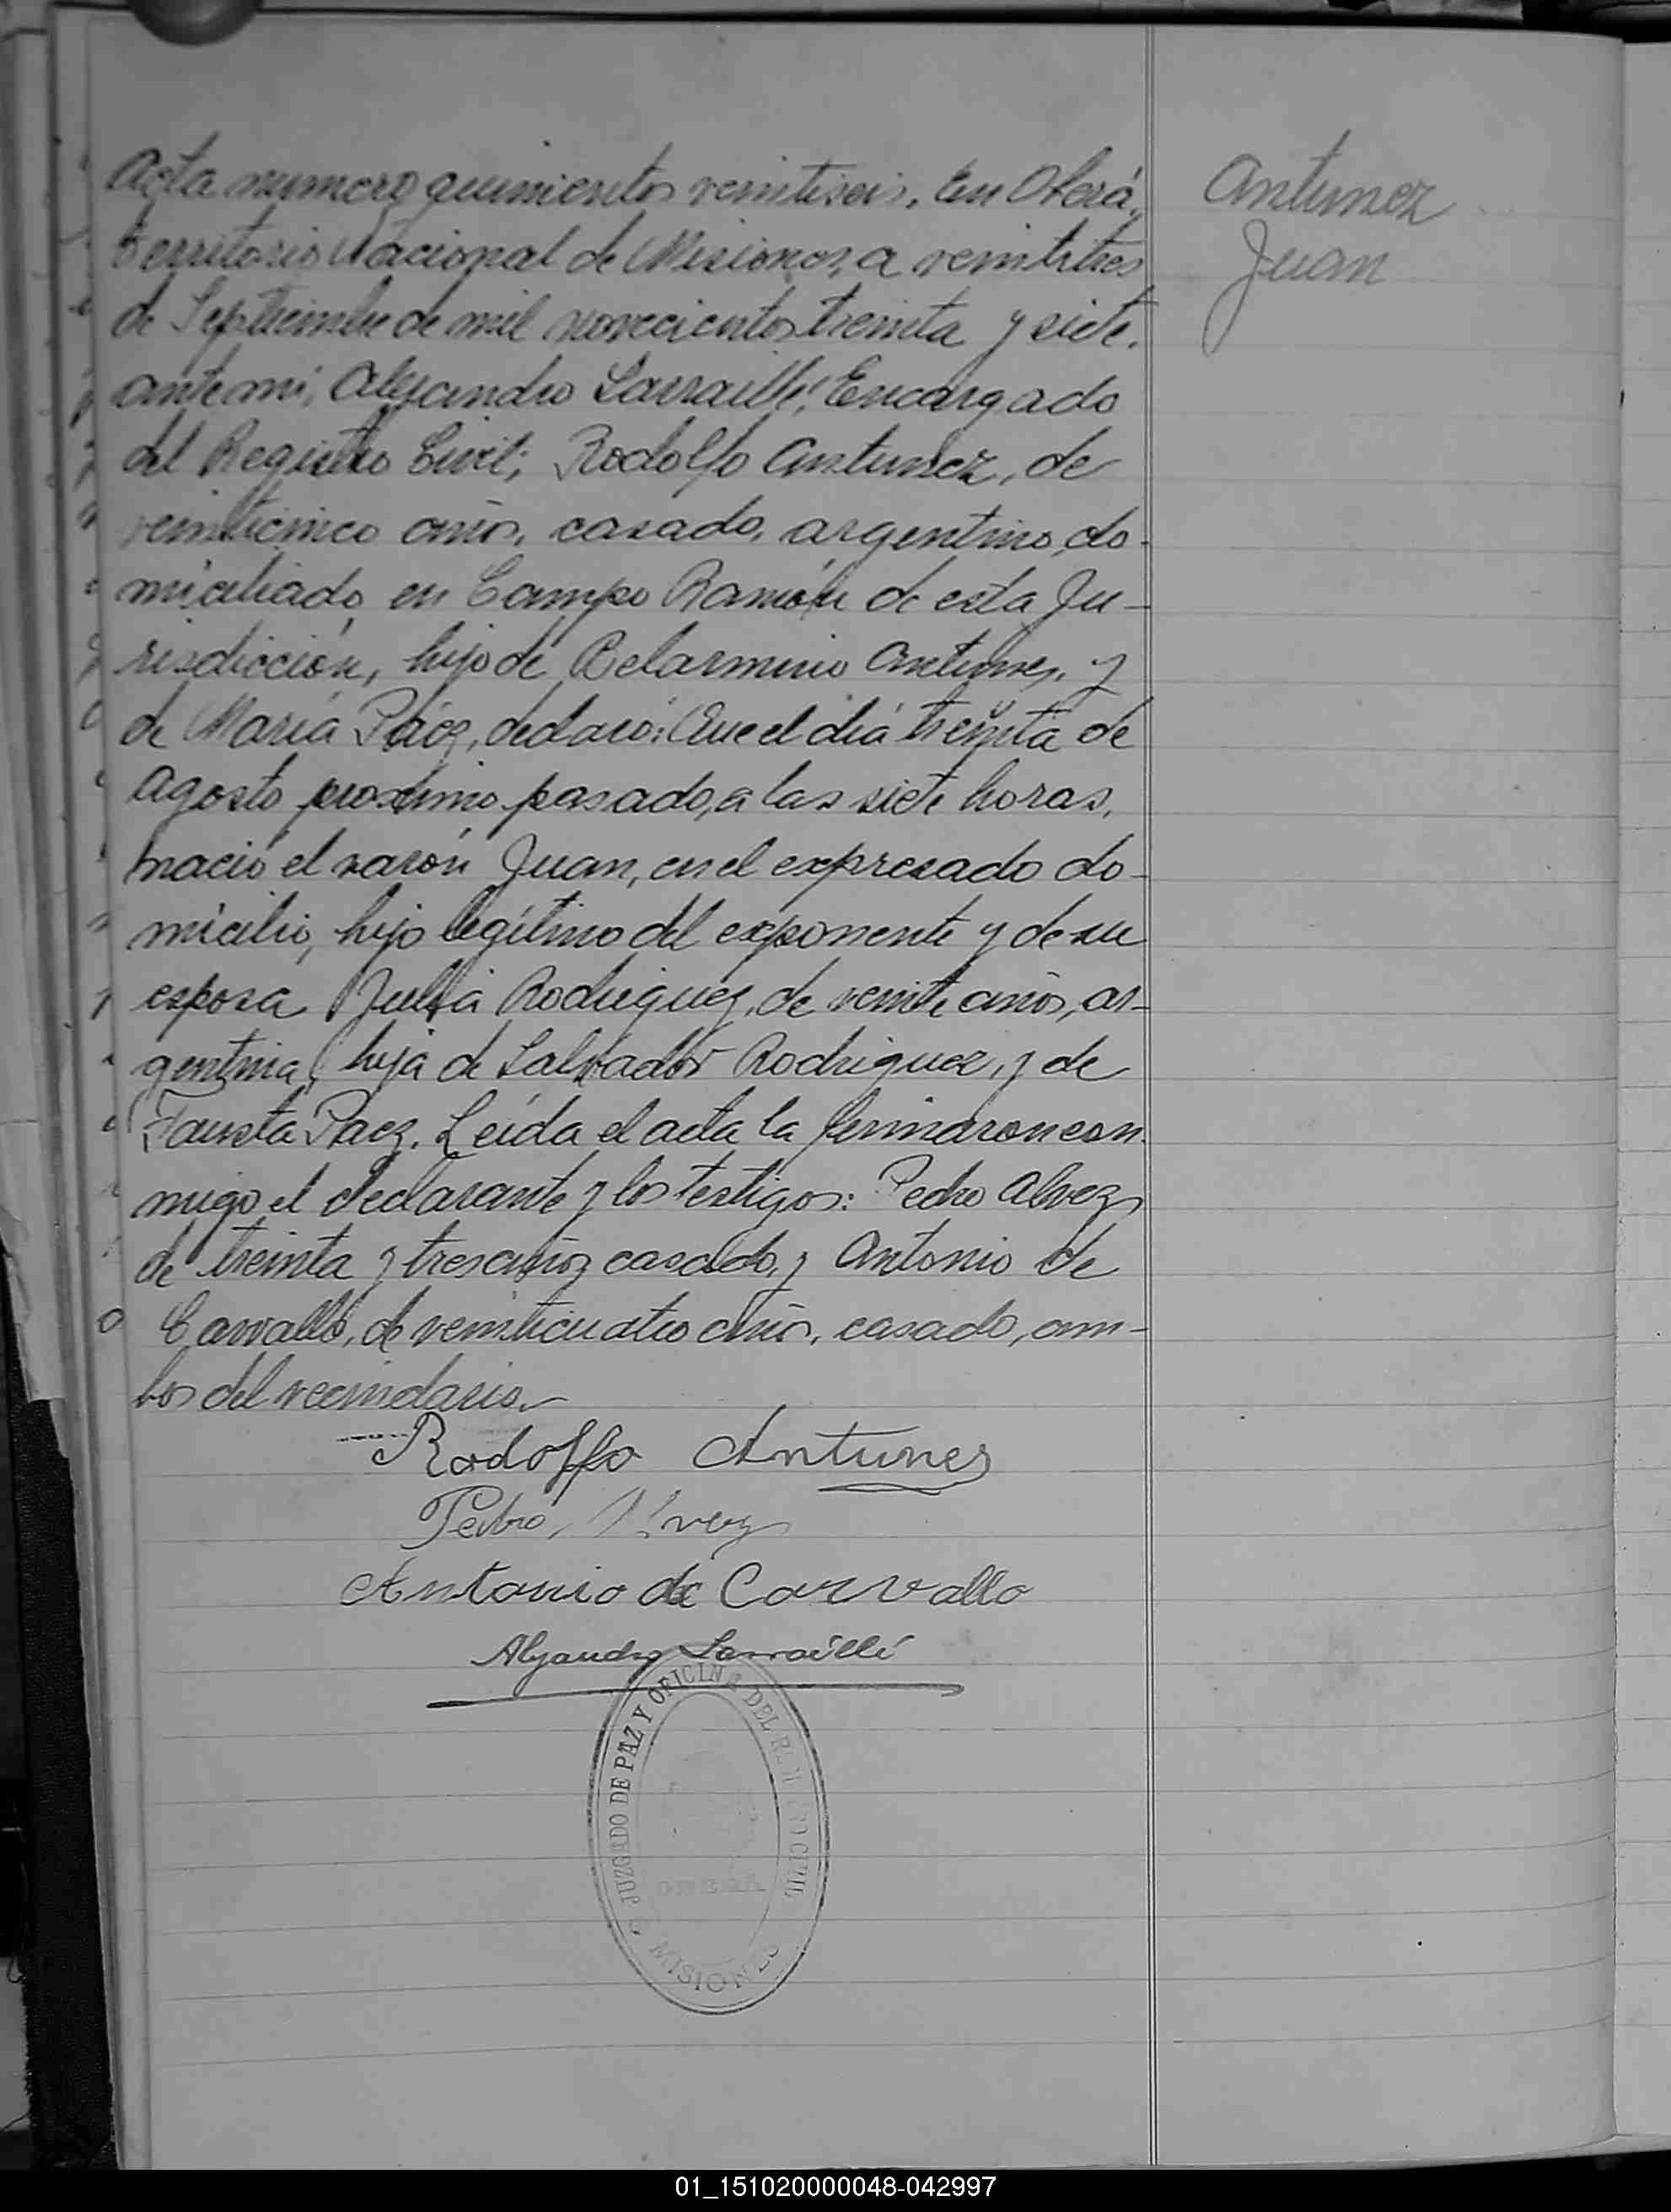 Acta numero quinientos veintiseis. En Oberá,
territorio Nacional de Misiones, a veintitres
de Septiembre de mil novecientos treinta y siete.
ante mi, Alejandro Larraillé, Encargado
del Registro Civil; Rodolfo Antunez, de
veinticinco años, casado, argentino, do-
miciliado en Campo Ramón de esta Ju-
risdicción, hijo de Belarmino Antunez, y
de María Páez, declaró: Que el día treinta de
Agosto proximo pasado, a las siete horas,
nació el varón Juan, en el expresado do-
micilio, hijo legítimo del exponente y de su
esposa Julia Rodriguez, de veinte años, ar-
gentina, hija de Salvador Rodriguez, y de
Fausta Paez. Leída el acta la firmaron con
migo el declarante y los testigos: Pedro Alvez
de treinta y tres años casado, y Antonio de
Carvallo, de veinticuatro años, casado, am-
bos del vecindario.
Antunez
Juan
Rodolfo Antunes
Pedro Alvez
Antonio de Carvallo
Alejandro Larraillé
JUZGADO DE PAZ Y OFICINA DEL REGISTRO CIVIL
OBERA
MISIONES
01_151020000048-042997